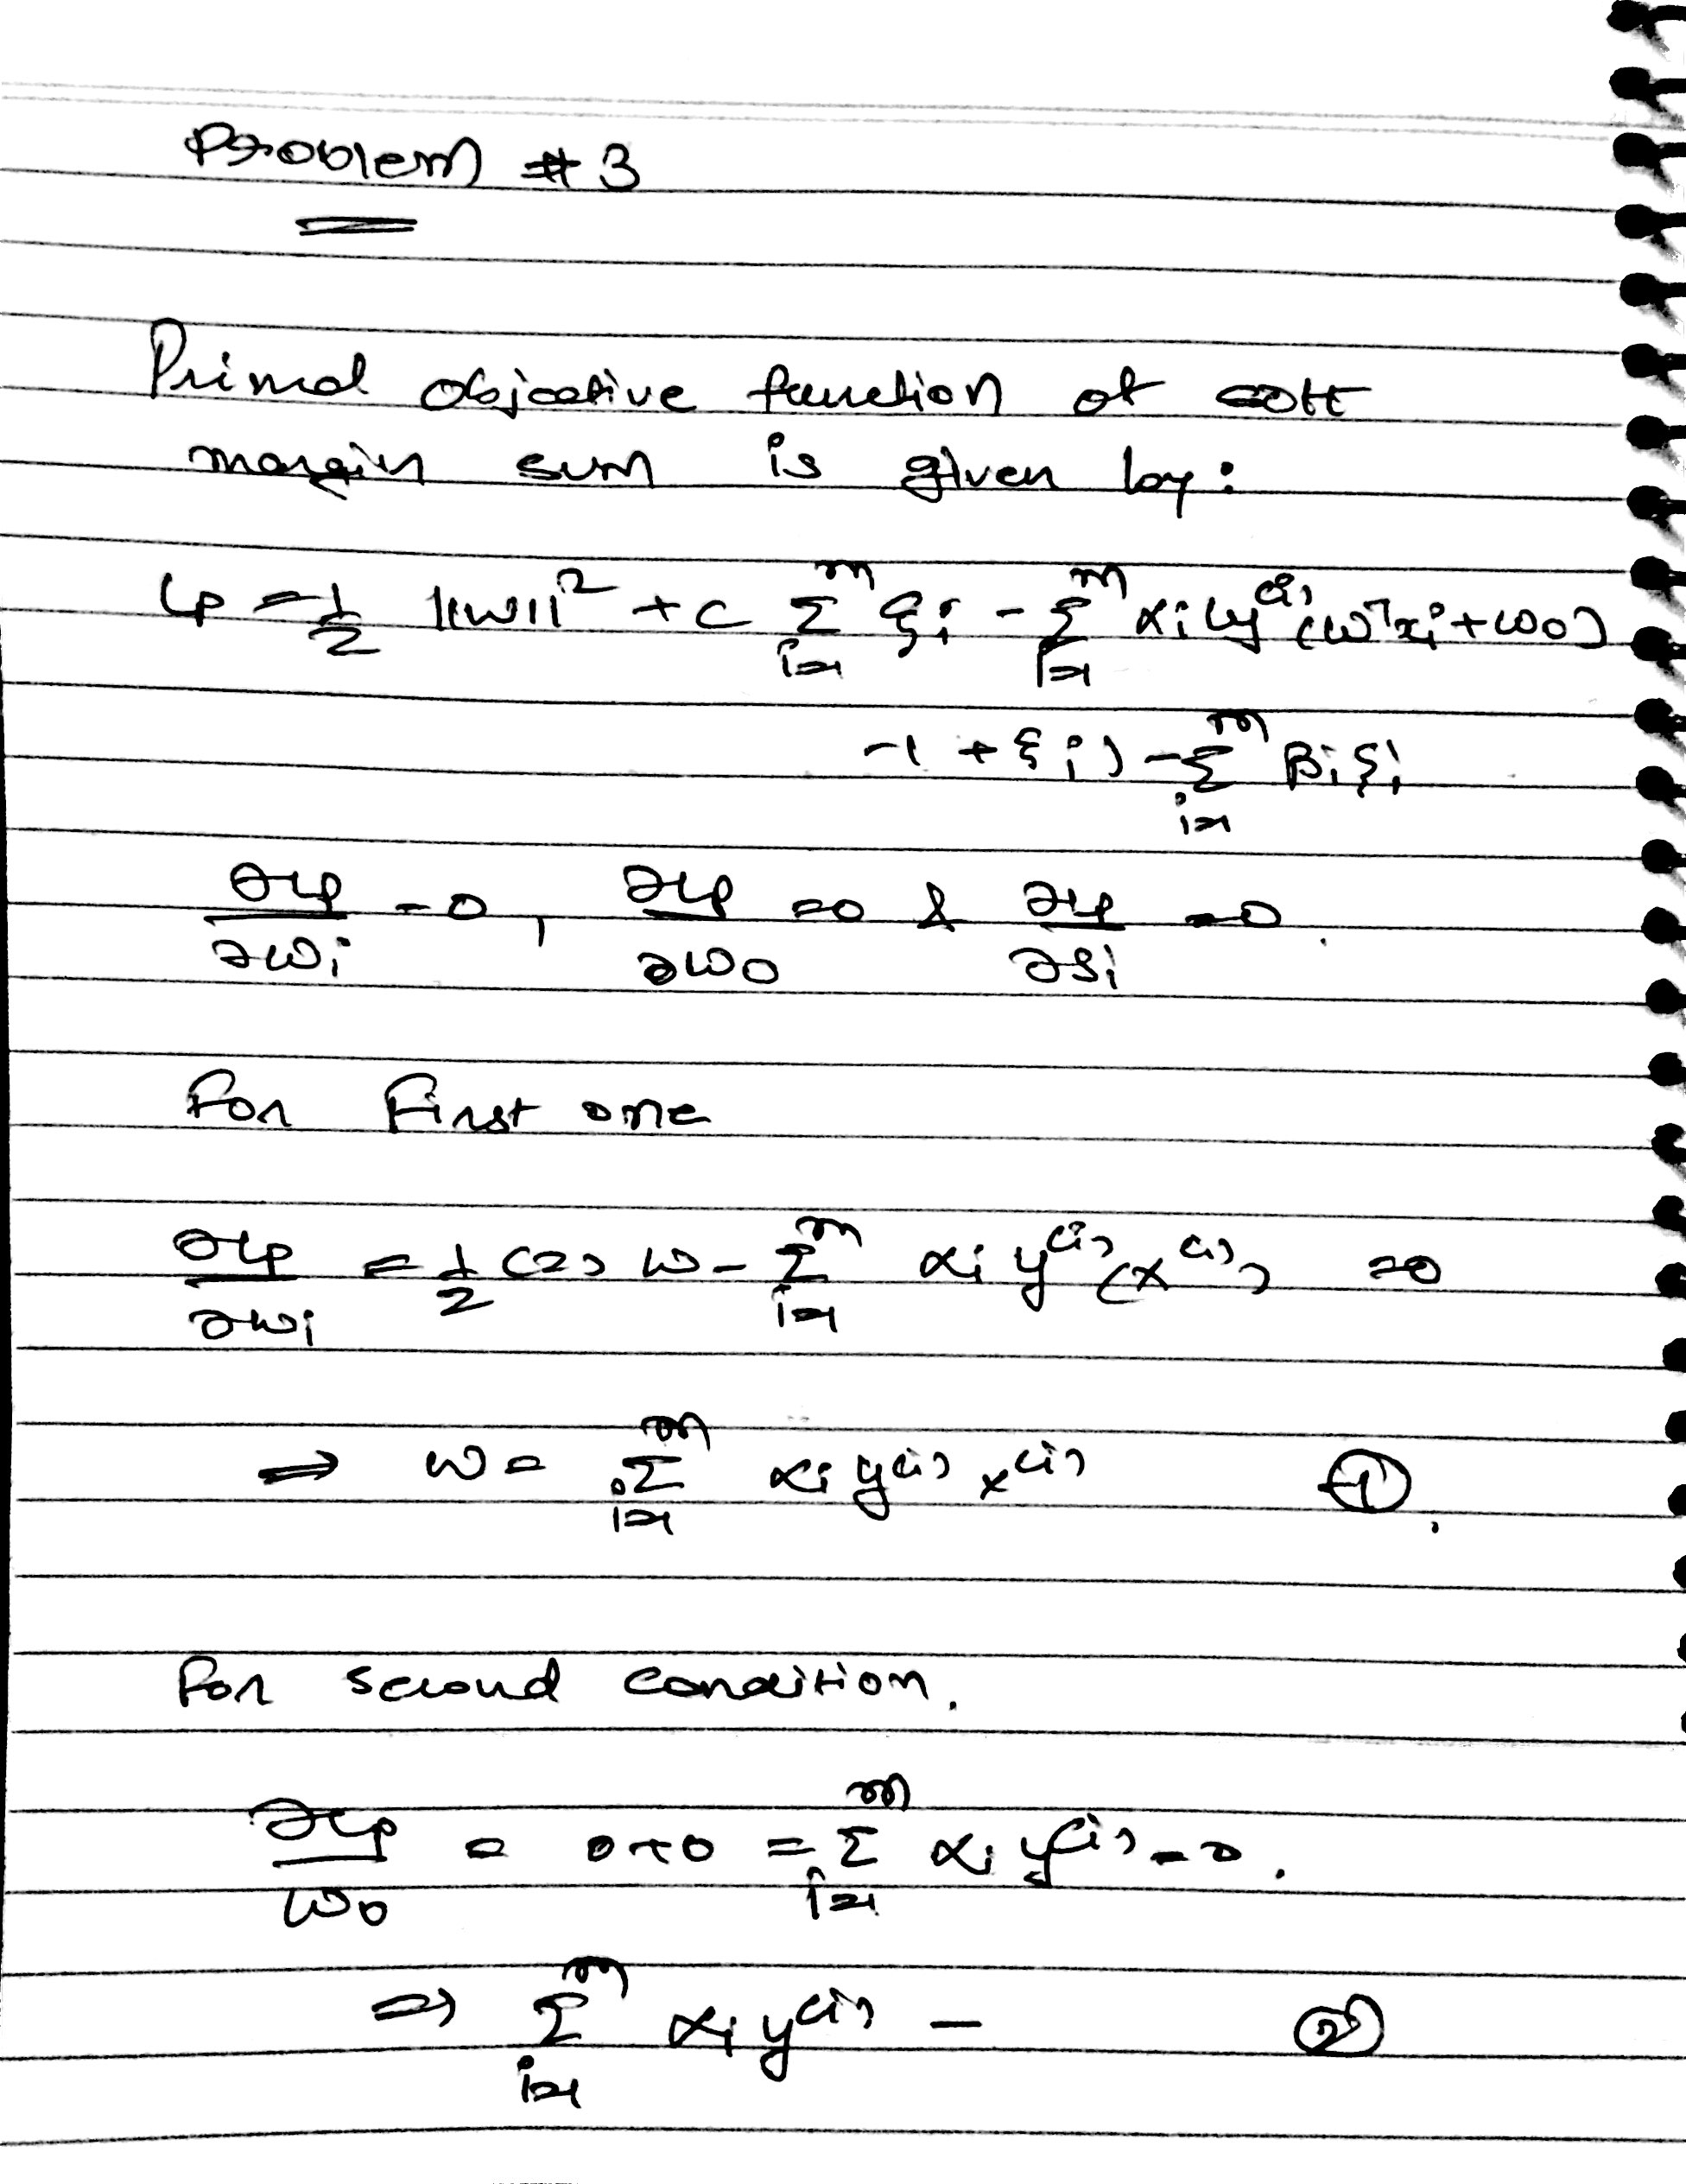 Problem #3
Primal objective function of soft
margin svm is given by:
Lp = 1/2 ||w||² + C Σ_{i=1}^{m} ξi - Σ_{i=1}^{m} αi (y^(i) (w^T xi + w0)
-1 + ξi) - Σ_{i=1}^{m} βi ξi
∂Lp/∂wi = 0, ∂Lp/∂w0 = 0 & ∂Lp/∂ξi = 0.
For First one
∂Lp/∂wi = 1/2 (2) w - Σ_{i=1}^{m} αi y^(i) (x^(i)) = 0
⇒ w = Σ_{i=1}^{m} αi y^(i) x^(i) ①.
For second condition.
∂Lp/w0 = 0+0 = Σ_{i=1}^{m} αi y^(i) = 0.
⇒ Σ_{i=1}^{m} αi y^(i) — ②